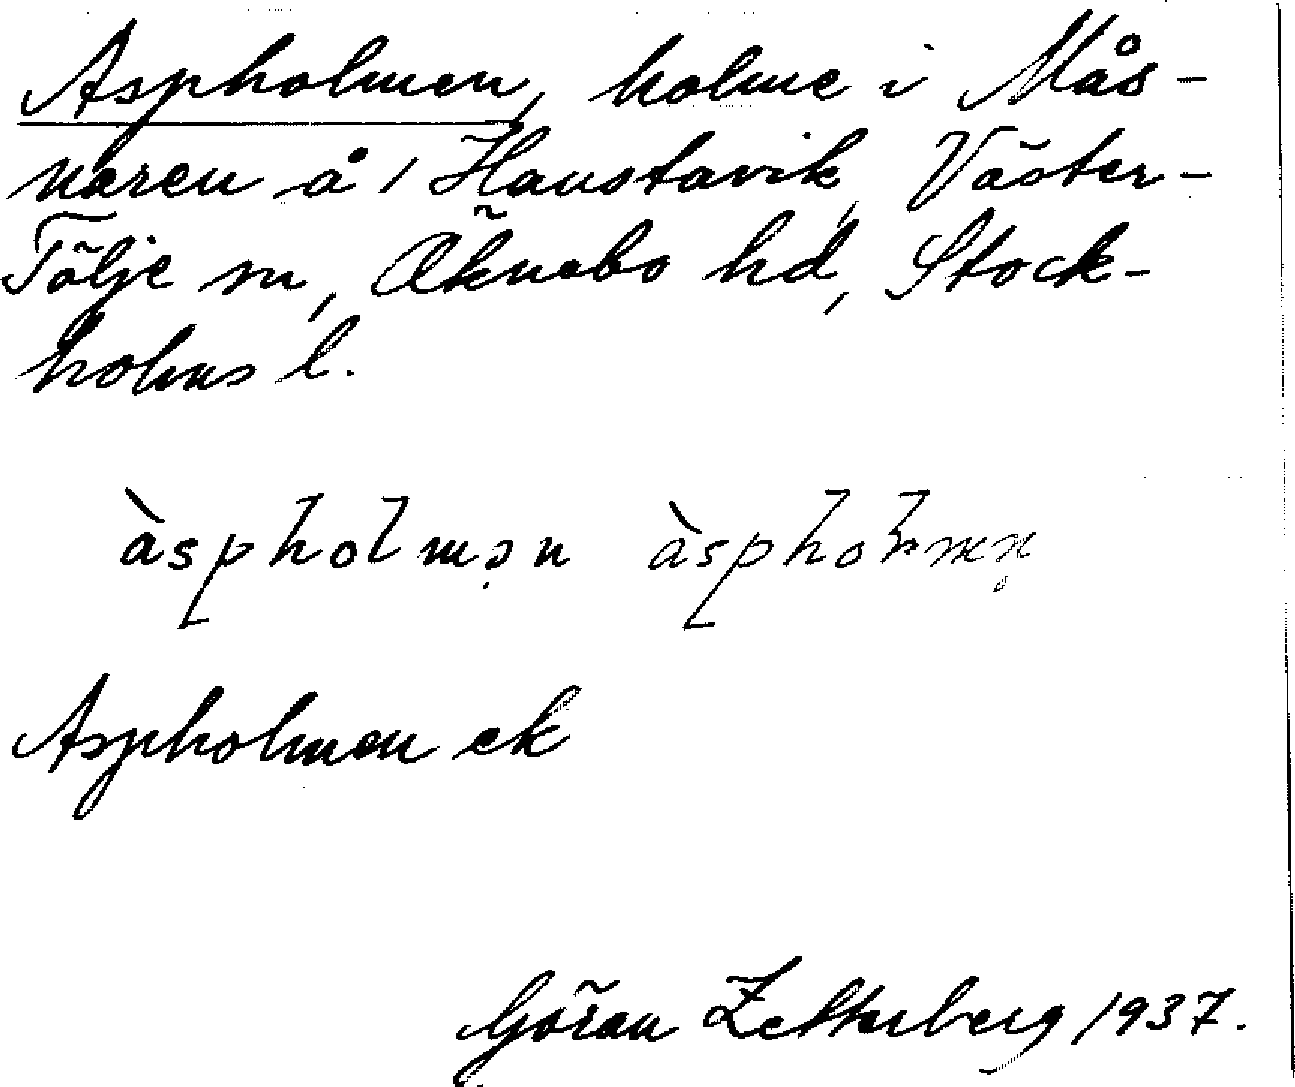 Aspholmen, holme i Mås-
naren å 1 Hanstavik, Väster-
Tälje sn, Öknebo hd, Stock-
holms l.
àspholmən àspholmn̥
Aspholmen ek
Göran Zetterberg 1937.